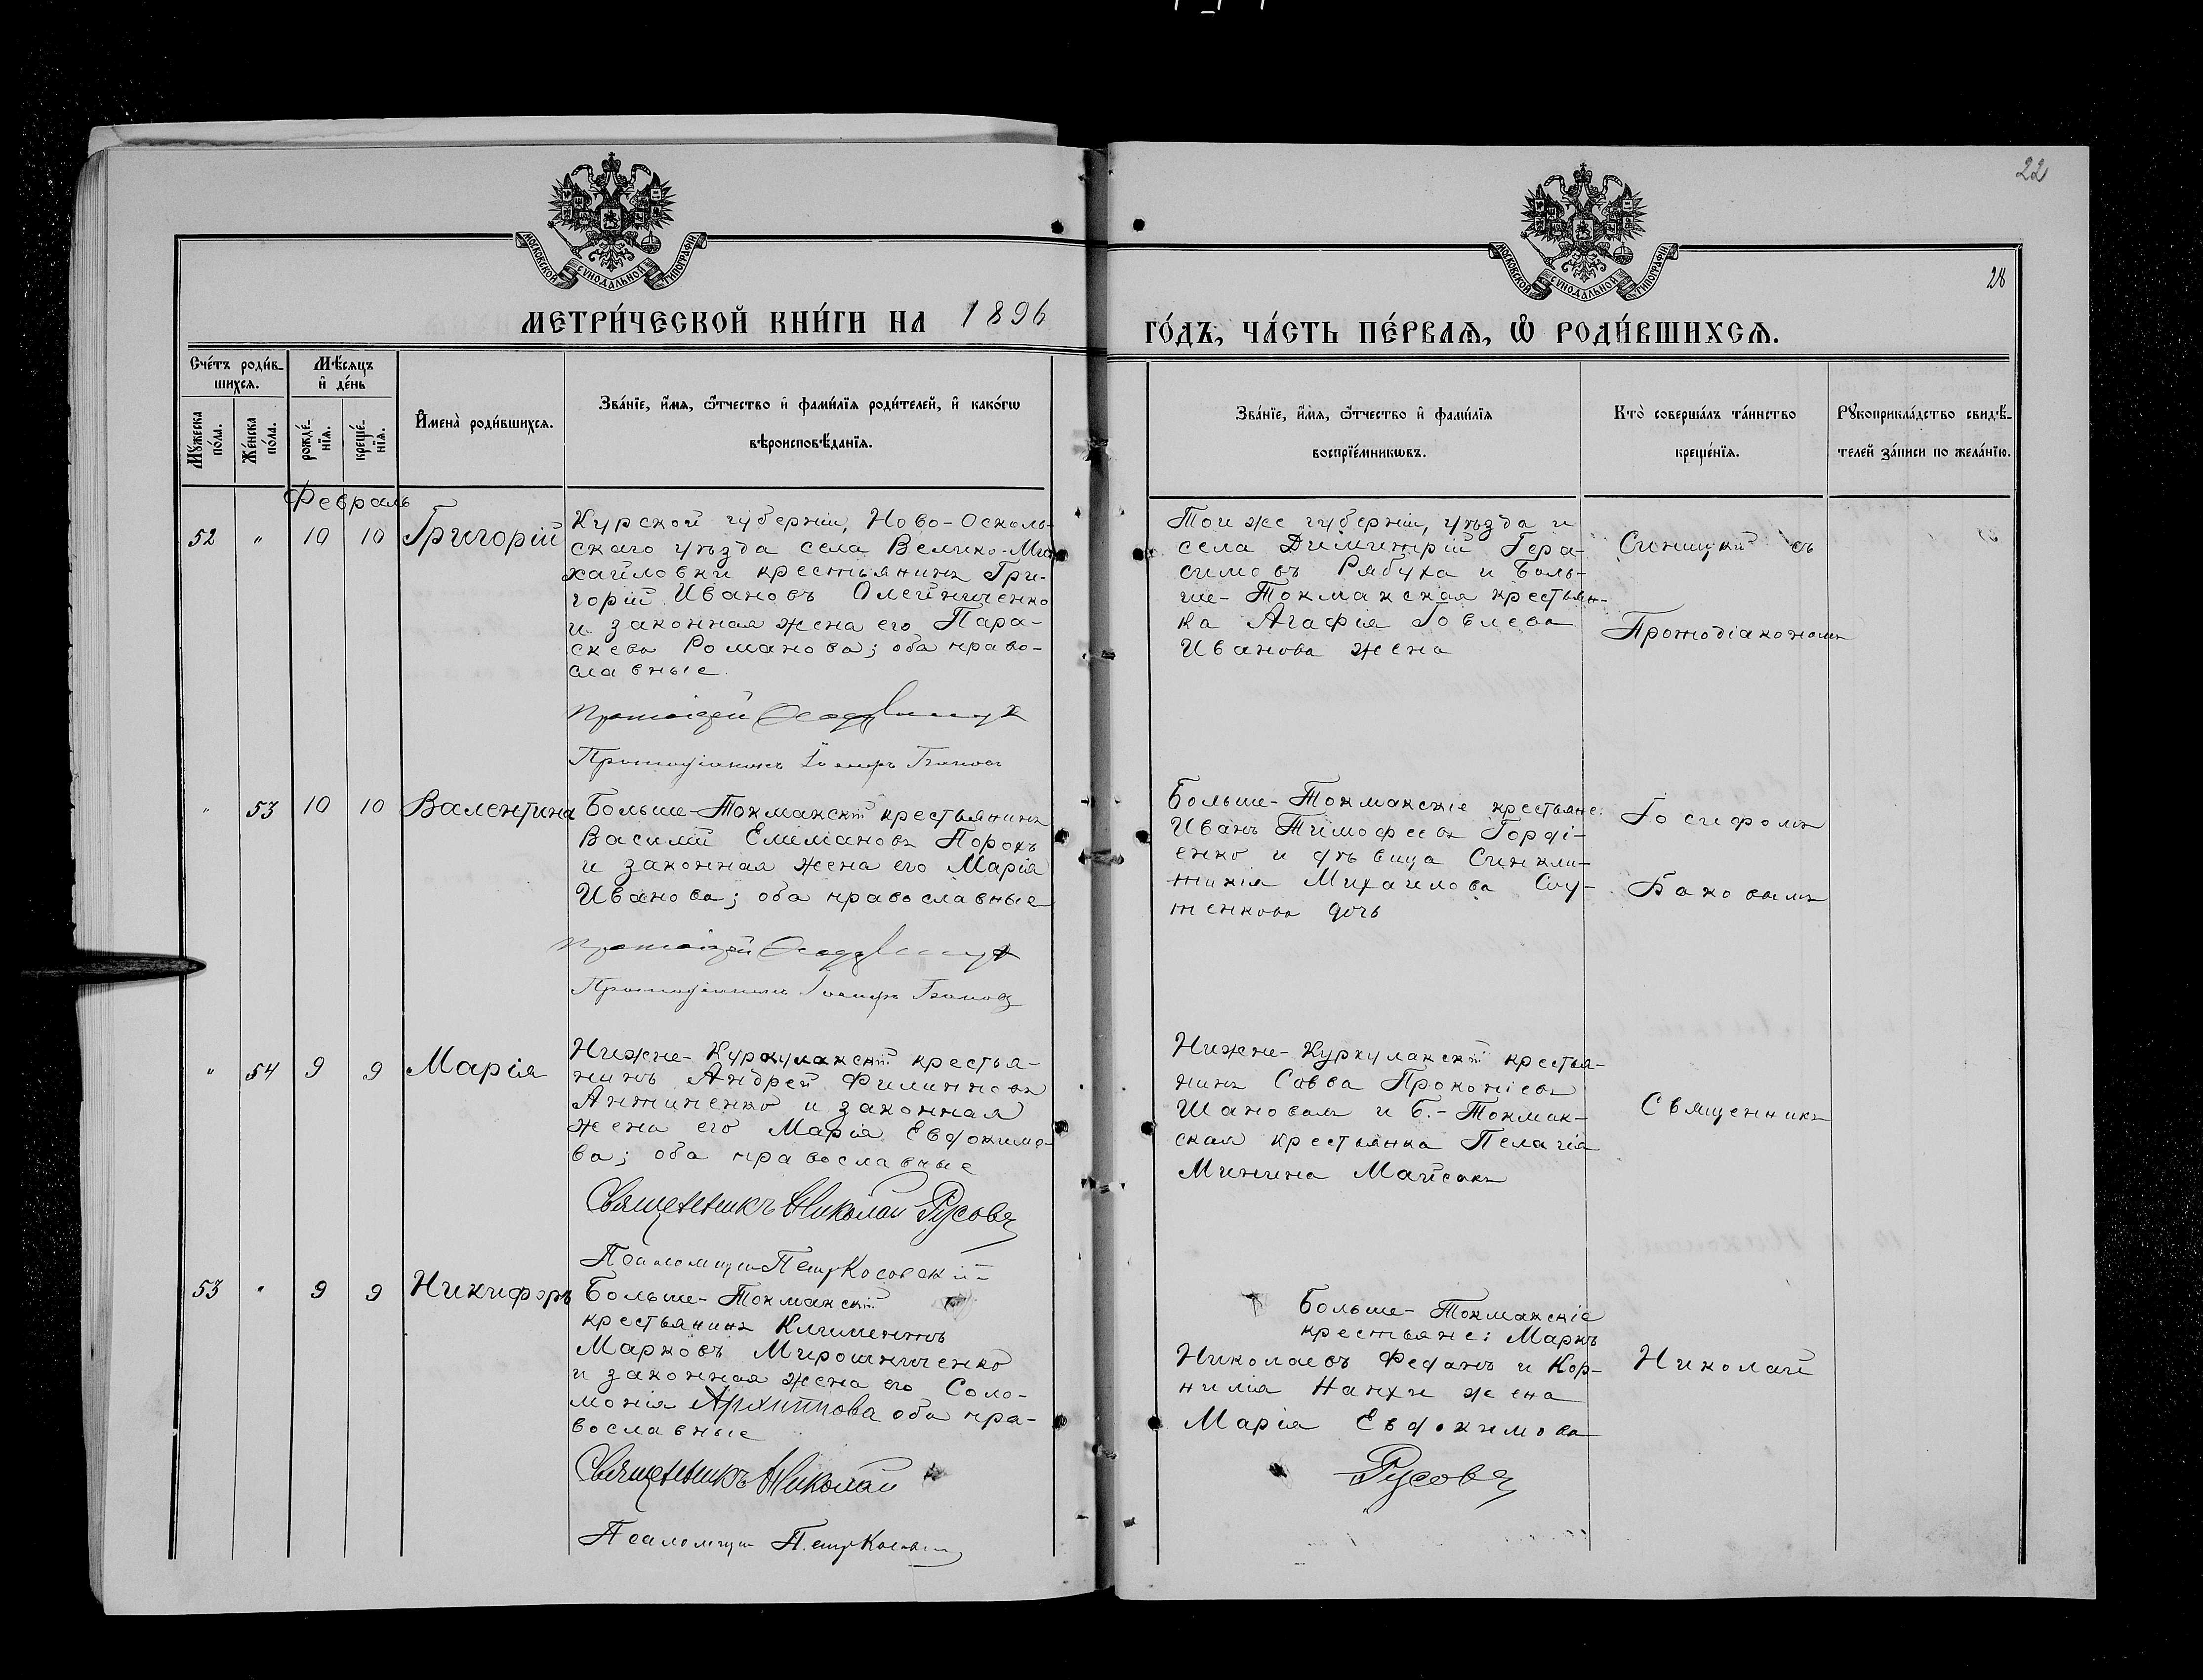 22
28
МОСКОВСКОЙ СѴНОДАЛЬНОЙ ТИПОГРАФІИ
МОСКОВСКОЙ СѴНОДАЛЬНОЙ ТИПОГРАФІИ
МЕТРИ́ЧЕСКОЙ КНИ́ГИ НА 1896
ГО́ДЪ, ЧА́СТЬ ПЕ́РВАѦ, Ѽ РОДИ́ВШИХСѦ.
Сче́тъ роди́в-
шихсѧ.
Мѣ́сѧцъ
и҆ де́нь
Мꙋ́жеска
по́ла.
Же́нска
по́ла.
рожде́-
нїѧ.
креще́-
нїѧ.
И҆мена̀ роди́вшихсѧ.
Зва́нїе, и҆́мѧ, ѻ҆́тчество и҆ фами́лїѧ роди́телей, и҆ како́гѡ
вѣроисповѣ́данїѧ.
Зва́нїе, и҆́мѧ, ѻ҆́тчество и҆ фами́лїѧ
воспрїе́мникѡвъ.
Кто̀ соверша́лъ та́инство
креще́нїѧ.
Рꙋкоприкла́дство свидѣ́-
телей за́писи по жела́нїю.
Февраль
52 " 10 10 Григорій
Курской губерніи, Ново-Осколь-
скаго уѣзда села Велико-Ми-
хайловки крестьянинъ Гри-
горій Ивановъ Олейниченко
и законная жена его Пара-
скева Романова; оба право-
славные.
Протоіерей
Протодіаконъ Іосифъ Баковъ
Той же губерніи, уѣзда и
села Димитрій Гера-
симовъ Рябуха и Боль-
ше-Токмакская крестьян-
ка Агафія Іовлева
Иванова жена
Протодіакономъ
" 53 10 10 Валентина
Больше-Токмакскій крестьянинъ
Василій Емиліановъ Порохъ
и законная жена его Марія
Иванова; оба православные
Протоіерей
Протодіаконъ Іосифъ Баковъ
Больше-Токмакскіе крестьяне:
Иванъ Тимофеевъ Горді-
енко и дѣвица Синкли-
тикія Михаилова
дочь
Іосифомъ
Баковымъ
" 54 9 9 Марія
Нижне-Куркулакскій крестья-
нинъ Андрей Филипповъ
Антипенко и законная
жена его Марія Евдокимо-
ва; оба православные
Священникъ Николай Русовъ
Псаломщикъ Петръ Косовскій
Нижне-Куркулакскій крестья-
нинъ Савва Прокопіевъ
Шаповалъ и Б.-Токмак-
ская крестьянка Пелагія
Минина Майсакъ
Священникъ
53 " 9 9 Никифоръ
Больше-Токмакскій
крестьянинъ Климентъ
Марковъ Мирошниченко
и законная жена его Соло-
монія Архиппова оба пра-
вославные
Священникъ Николай
Псаломщикъ Петръ Косовскій
Больше-Токмакскіе
крестьяне: Маркъ
Николаевъ Феданъ и Кор-
нилія жена
Марія Евдокимова
Русовъ
Николай